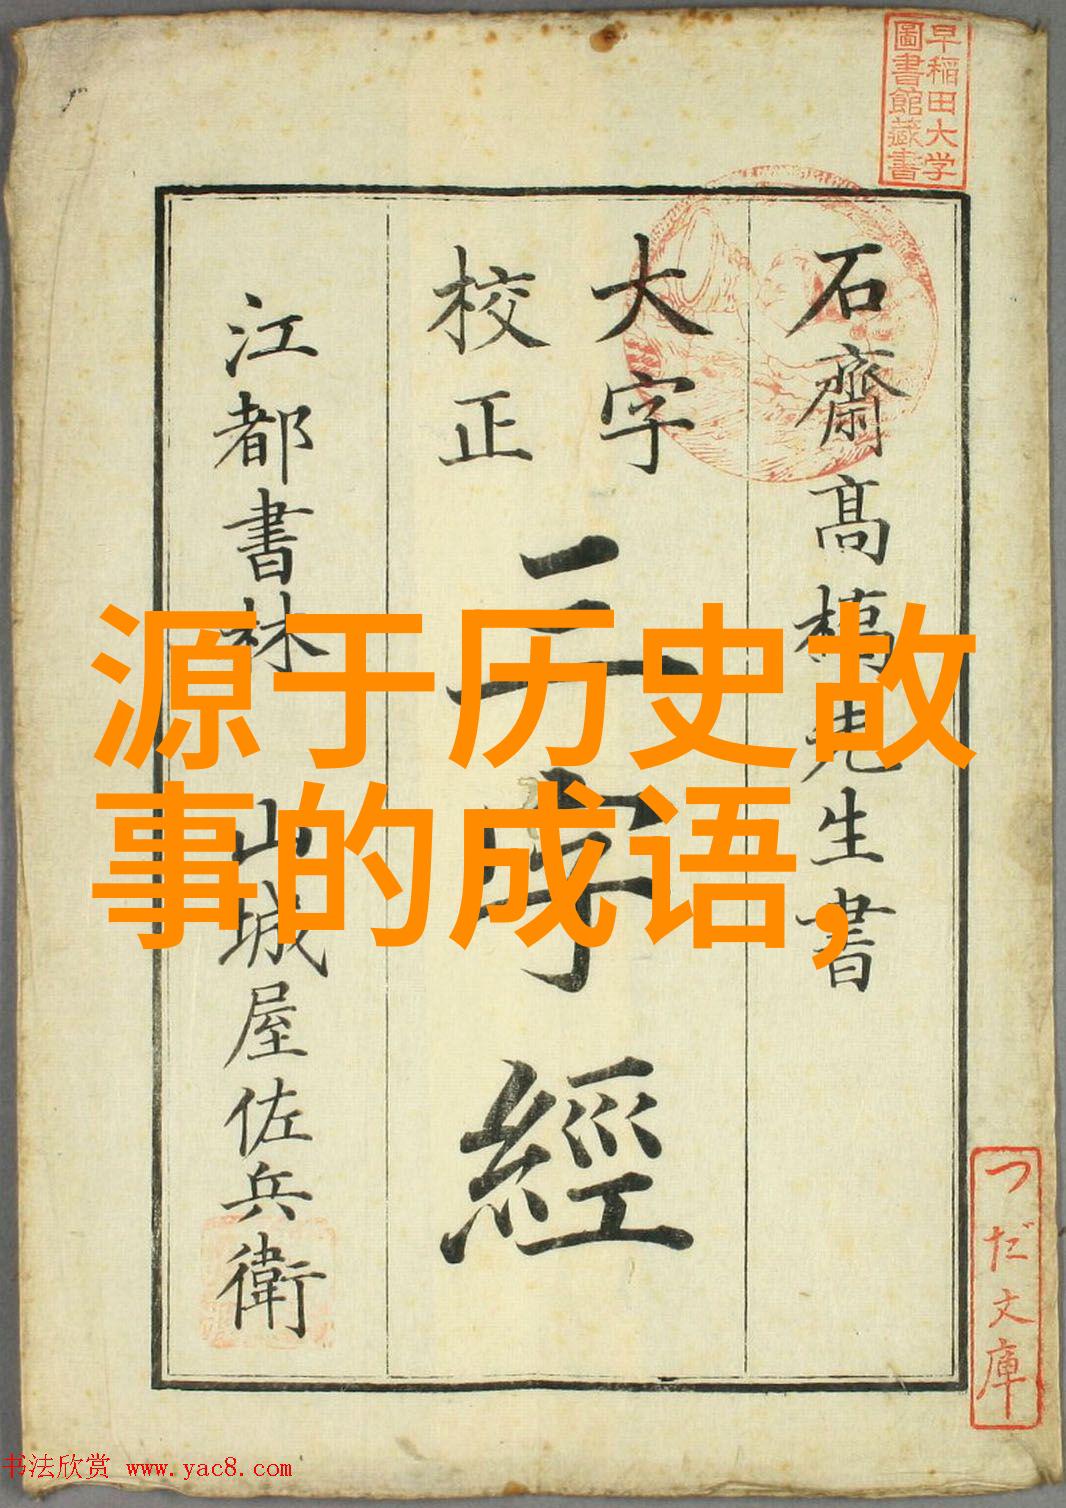 早稲田大学
圖書館藏書
石齋高橋先生書
大字
校正
三字經
江都書林 山城屋佐兵衛
源于历史故
事的成语,
つだ文庫
书法欣赏 www.yac8.com